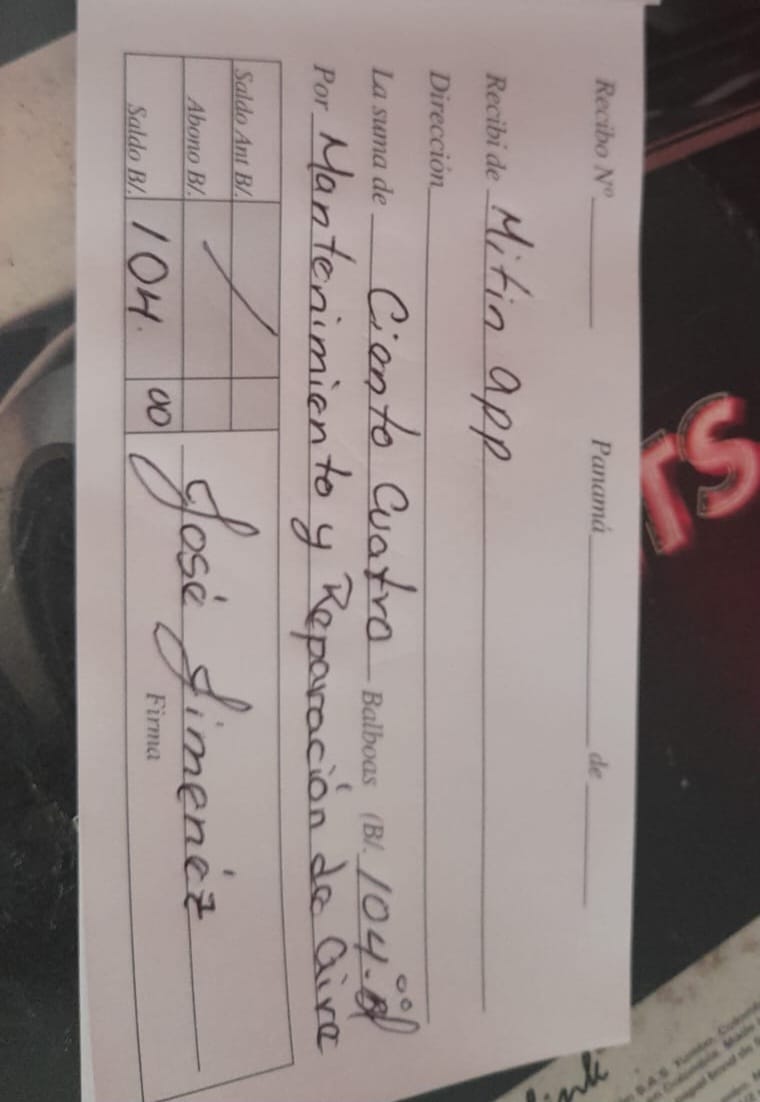 Recibo Nº ______ Panamá ______ de ______
Recibi de Mitin app
Dirección
La suma de Ciento Cuatro Balboas (B/. 104.00
Por Mantenimiento y Reparación de aire
Saldo Ant B/.
Abono B/.
Saldo B/. 104. 00
José Jimenéz
Firma
TS